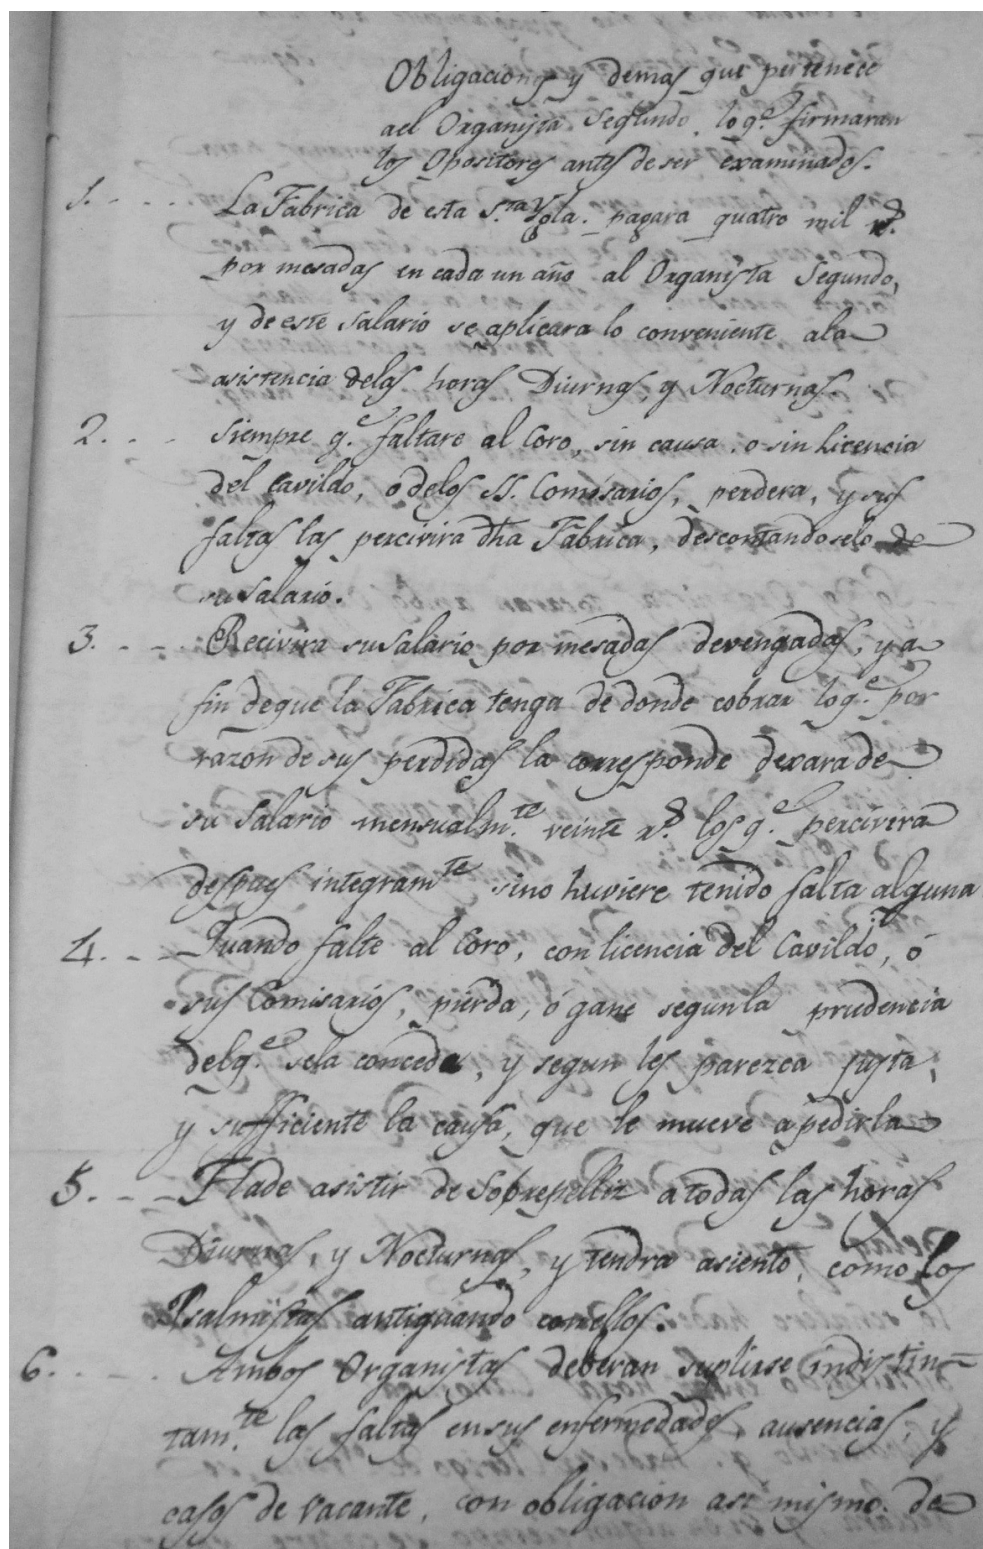 Obligacions y demas que pertenece
ael Organista Segundo, lo q.e firmaran
los Opositores antes de ser examinados.
1. - - - - La Fabrica de esta S.ta Ygla. pagara quatro mil r.s
por mesadas en cada un año al Organista Segundo,
y de este salario se aplicara lo conveniente ala
asistencia delas horas Diurnas, y Nocturnas.
2. - - - Siempre q.e faltare al Coro, sin causa, o sin Licencia
del Cavildo, ó delos SS. Comisarios, perdera, y sus
faltas las percivira dha Fabrica, descontandoselo de
su Salario.
3. - - - Recivira su Salario por mesadas devengadas, y a
fin deque la Fabrica tenga de donde cobrar lo q.e por
razon de sus perdidas la corresponde dexara de
su Salario mensualm.te veinte r.s los q.e percivira
despues integram.te sino huviere tenido falta alguna
4. - - - Quando falte al Coro, con licencia del Cavildo, ó
sus Comisarios, pierda, ó gane segun la prudencia
delq.e sela conceda, y segun les parezca justa,
y sufficiente la causa, que le mueve apedirla
5. - - - Hade asistir de Sobrepelliz a todas las horas
Diurnas, y Nocturnas, y tendra asiento, como los
Psalmistas antiguando conellos.
6. - - - - Ambos Organistas deberan suplirse indistin=
tam.te las faltas ensus enfermedades, ausencias, y
casos de vacante, con obligacion asi mismo de